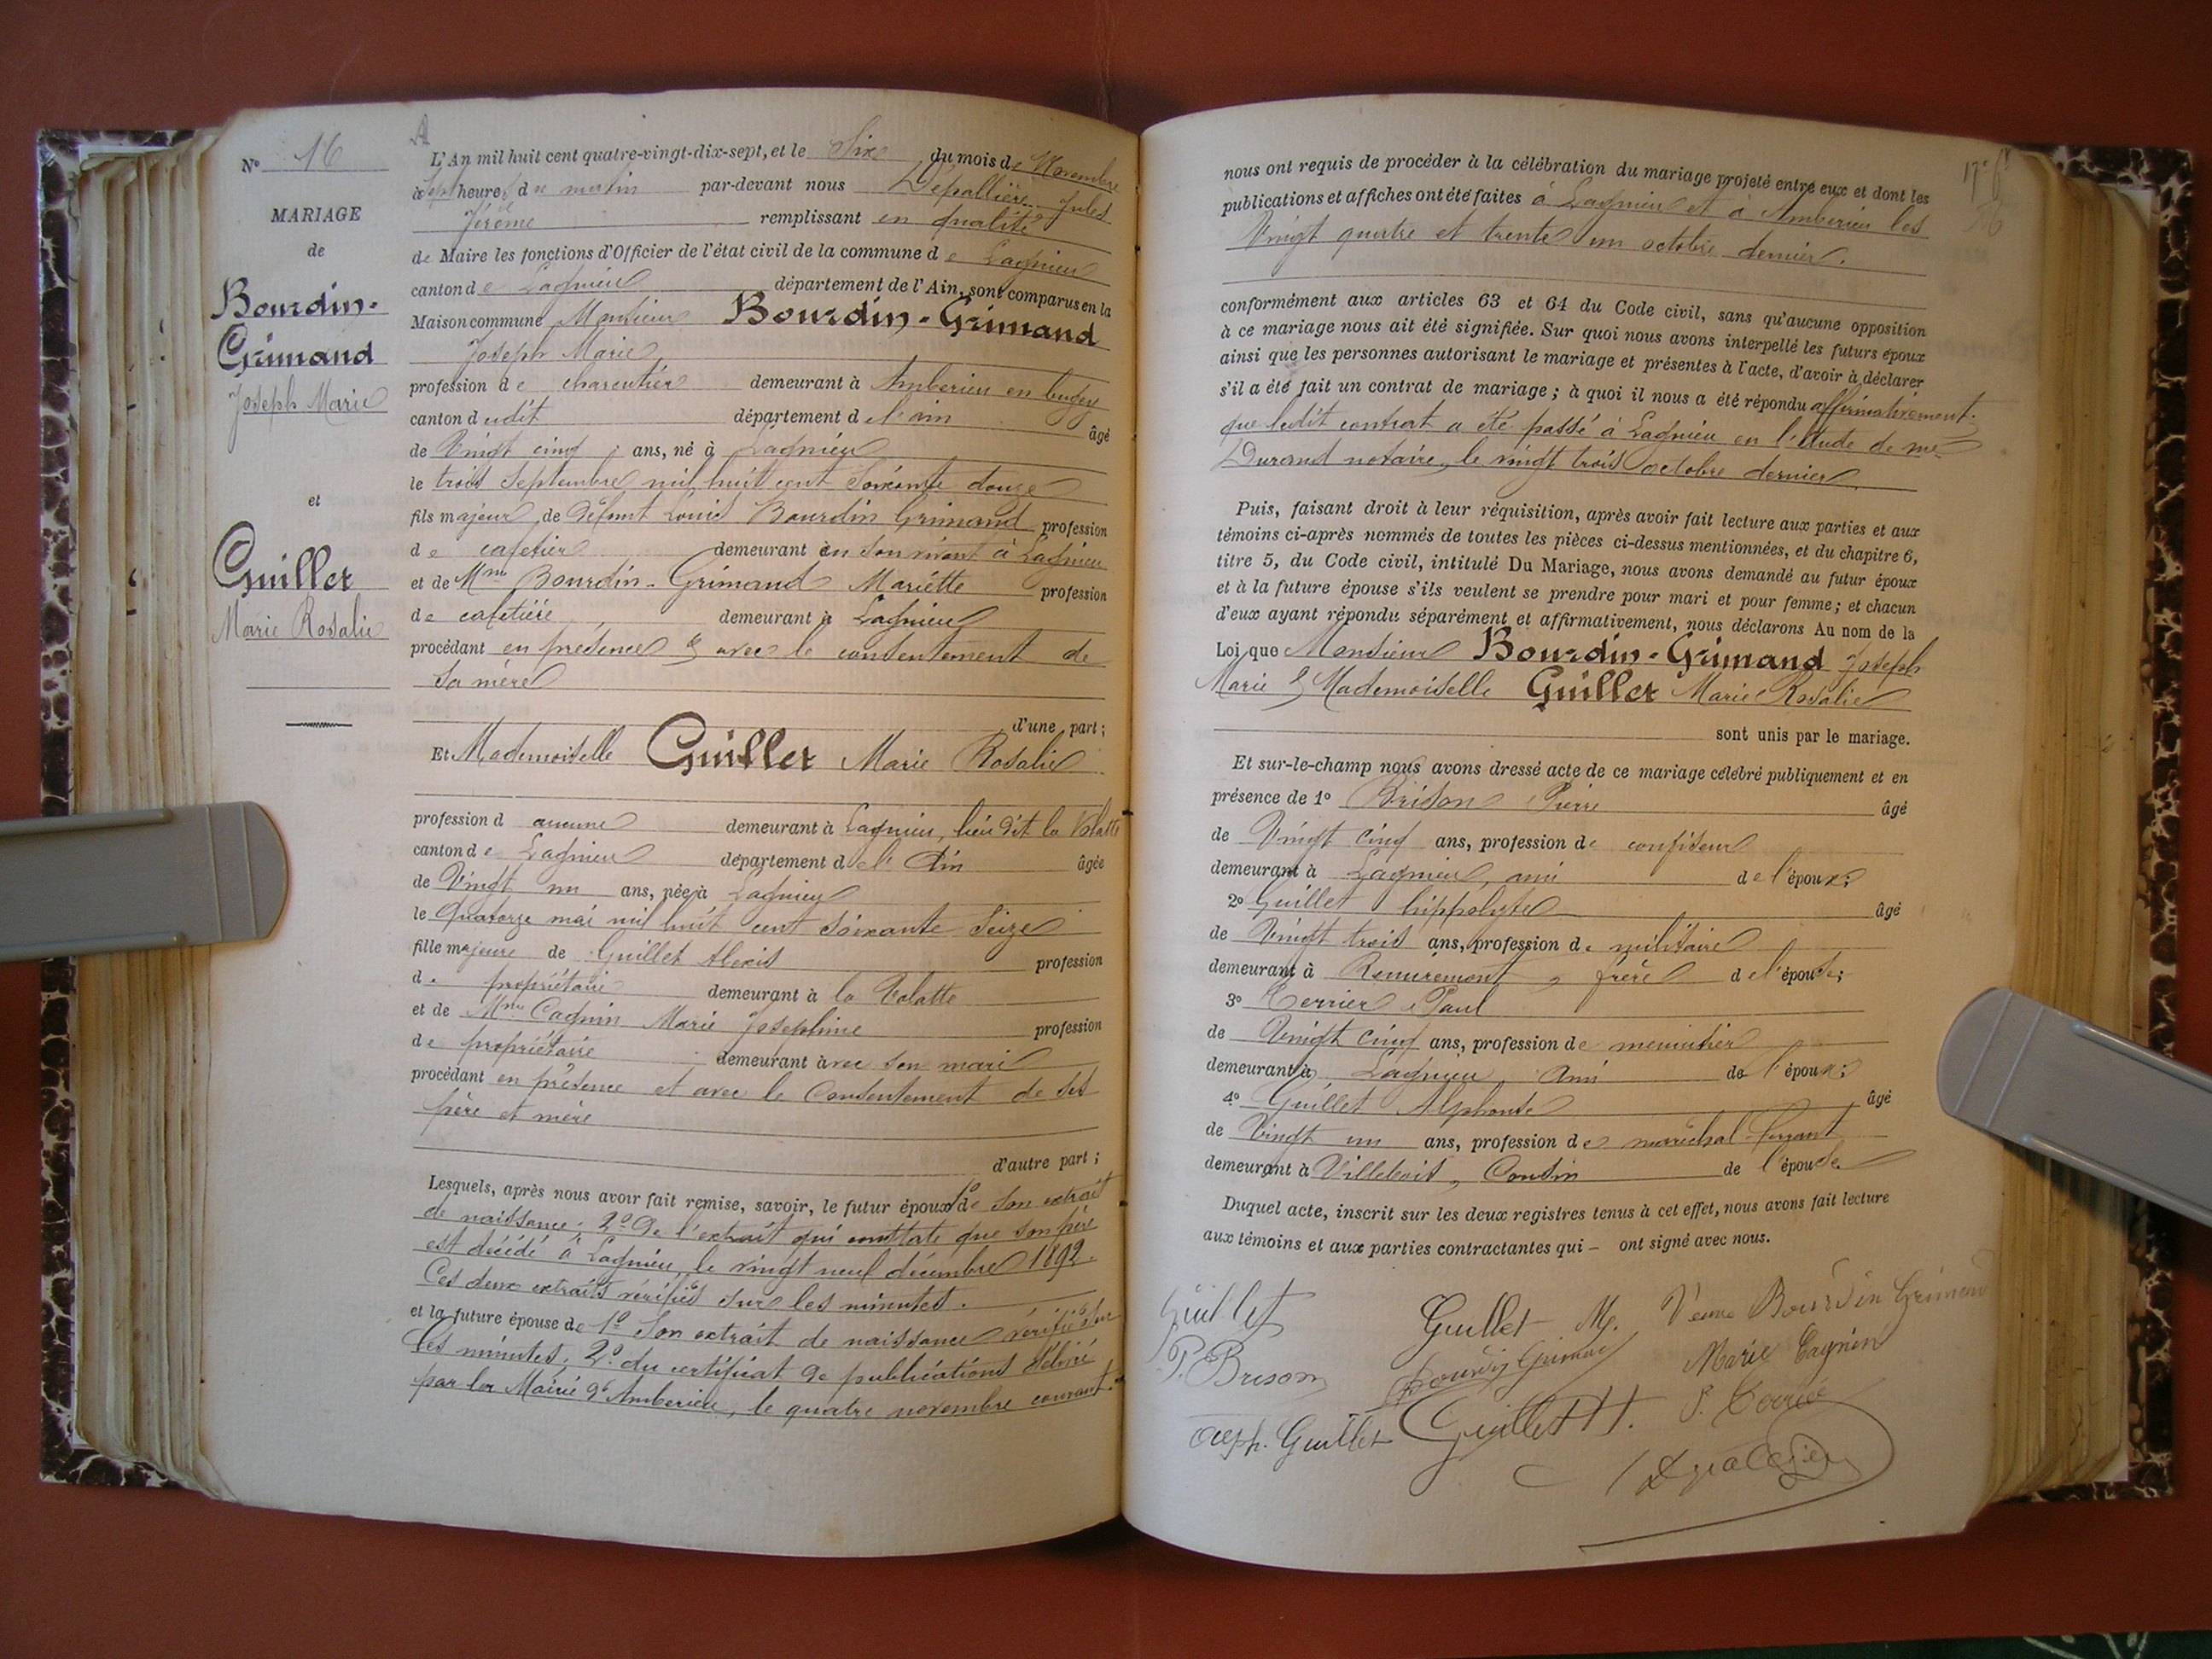 N° 16
MARIAGE
de
Bourdin-
Grimand
Joseph Marie
et
Guillet
Marie Rosalie
A
L'An mil huit cent quatre-vingt-dix-sept, et le Six du mois de Novembre
à Sept heures du matin par-devant nous Dépallière Jules
Jérôme remplissant en qualité
de Maire les fonctions d'Officier de l'état civil de la commune de Lagnieu
canton de Lagnieu département de l'Ain, sont comparus en la
Maison commune Monsieur Bourdin-Grimand
Joseph Marie
profession de charcutier demeurant à Amberieu en bugey
canton dudit département de l'ain âgé
de Vingt cinq ans, né à Lagnieu
le trois Septembre mil huit cent soixante douze
fils majeur de défunt Louis Bourdin Grimand profession
de cafetier demeurant en son vivant à Lagnieu
et de Mme Bourdin-Grimand Mariette profession
de cafetière demeurant à Lagnieu
procédant en présence & avec le consentement de
sa mère
d'une part;
Et Mademoiselle Guillet Marie Rosalie
profession d aucune demeurant à Lagnieu, lieu dit la Valatte
canton de Lagnieu département de l'Ain âgée
de Vingt un ans, née à Lagnieu
le Quatorze mai mil huit cent soixante Seize
fille majeure de Guillet Alexis profession
de propriétaire demeurant à la Valatte
et de Mme Cagnin Marie Josephine profession
de propriétaire demeurant avec son mari
procédant en présence et avec le Consentement de ses
père et mère
d'autre part;
Lesquels, après nous avoir fait remise, savoir, le futur époux 1° de son extrait
de naissance. 2° De l'extrait qui constate que son père
est décédé à Lagnieu, le vingt neuf décembre 1892.
Ces deux extraits vérifiés sur les minutes.
et la future épouse de 1° Son extrait de naissance vérifié sur
les minutes. 2° du certificat de publications délivré
par la Mairie d'Amberieu, le quatre novembre courant.
nous ont requis de procéder à la célébration du mariage projeté entre eux et dont les
publications et affiches ont été faites à Lagnieu et à Amberieu les
Vingt quatre et trente un octobre dernier.
conformément aux articles 63 et 64 du Code civil, sans qu'aucune opposition
à ce mariage nous ait été signifiée. Sur quoi nous avons interpellé les futurs époux
ainsi que les personnes autorisant le mariage et présentes à l'acte, d'avoir à déclarer
s'il a été fait un contrat de mariage; à quoi il nous a été répondu affirmativement.
que ledit contrat a été passé à Lagnieu en l'étude de me
Durand notaire, le vingt trois octobre dernier.
Puis, faisant droit à leur réquisition, après avoir fait lecture aux parties et aux
témoins ci-après nommés de toutes les pièces ci-dessus mentionnées, et du chapitre 6,
titre 5, du Code civil, intitulé Du Mariage, nous avons demandé au futur époux
et à la future épouse s'ils veulent se prendre pour mari et pour femme; et chacun
d'eux ayant répondu séparément et affirmativement, nous déclarons Au nom de la
Loi que Monsieur Bourdin-Grimand Joseph
Marie & Mademoiselle Guillet Marie Rosalie
sont unis par le mariage.
Et sur-le-champ nous avons dressé acte de ce mariage célébré publiquement et en
présence de 1° Brison Pierre âgé
de Vingt cinq ans, profession de confiseur
demeurant à Lagnieu, ami de l'époux;
2° Guillet hippolyte âgé
de Vingt trois ans, profession de militaire
demeurant à Remiremont, frère de l'épouse;
3° Terrier Paul
de Vingt cinq ans, profession de menuisier
demeurant à Lagnieu, Ami de l'époux;
4° Guillet Alphonse âgé
de Vingt un ans, profession de maréchal-ferrant
demeurant à Villebois, Cousin de l'épouse
Duquel acte, inscrit sur les deux registres tenus à cet effet, nous avons fait lecture
aux témoins et aux parties contractantes qui - ont signé avec nous.
Guillet
Guillet M.
Veuve Bourdin Grimand
P. Brison
Bourdin Grimand
Marie Cagnin
Guillet
Guillet H.